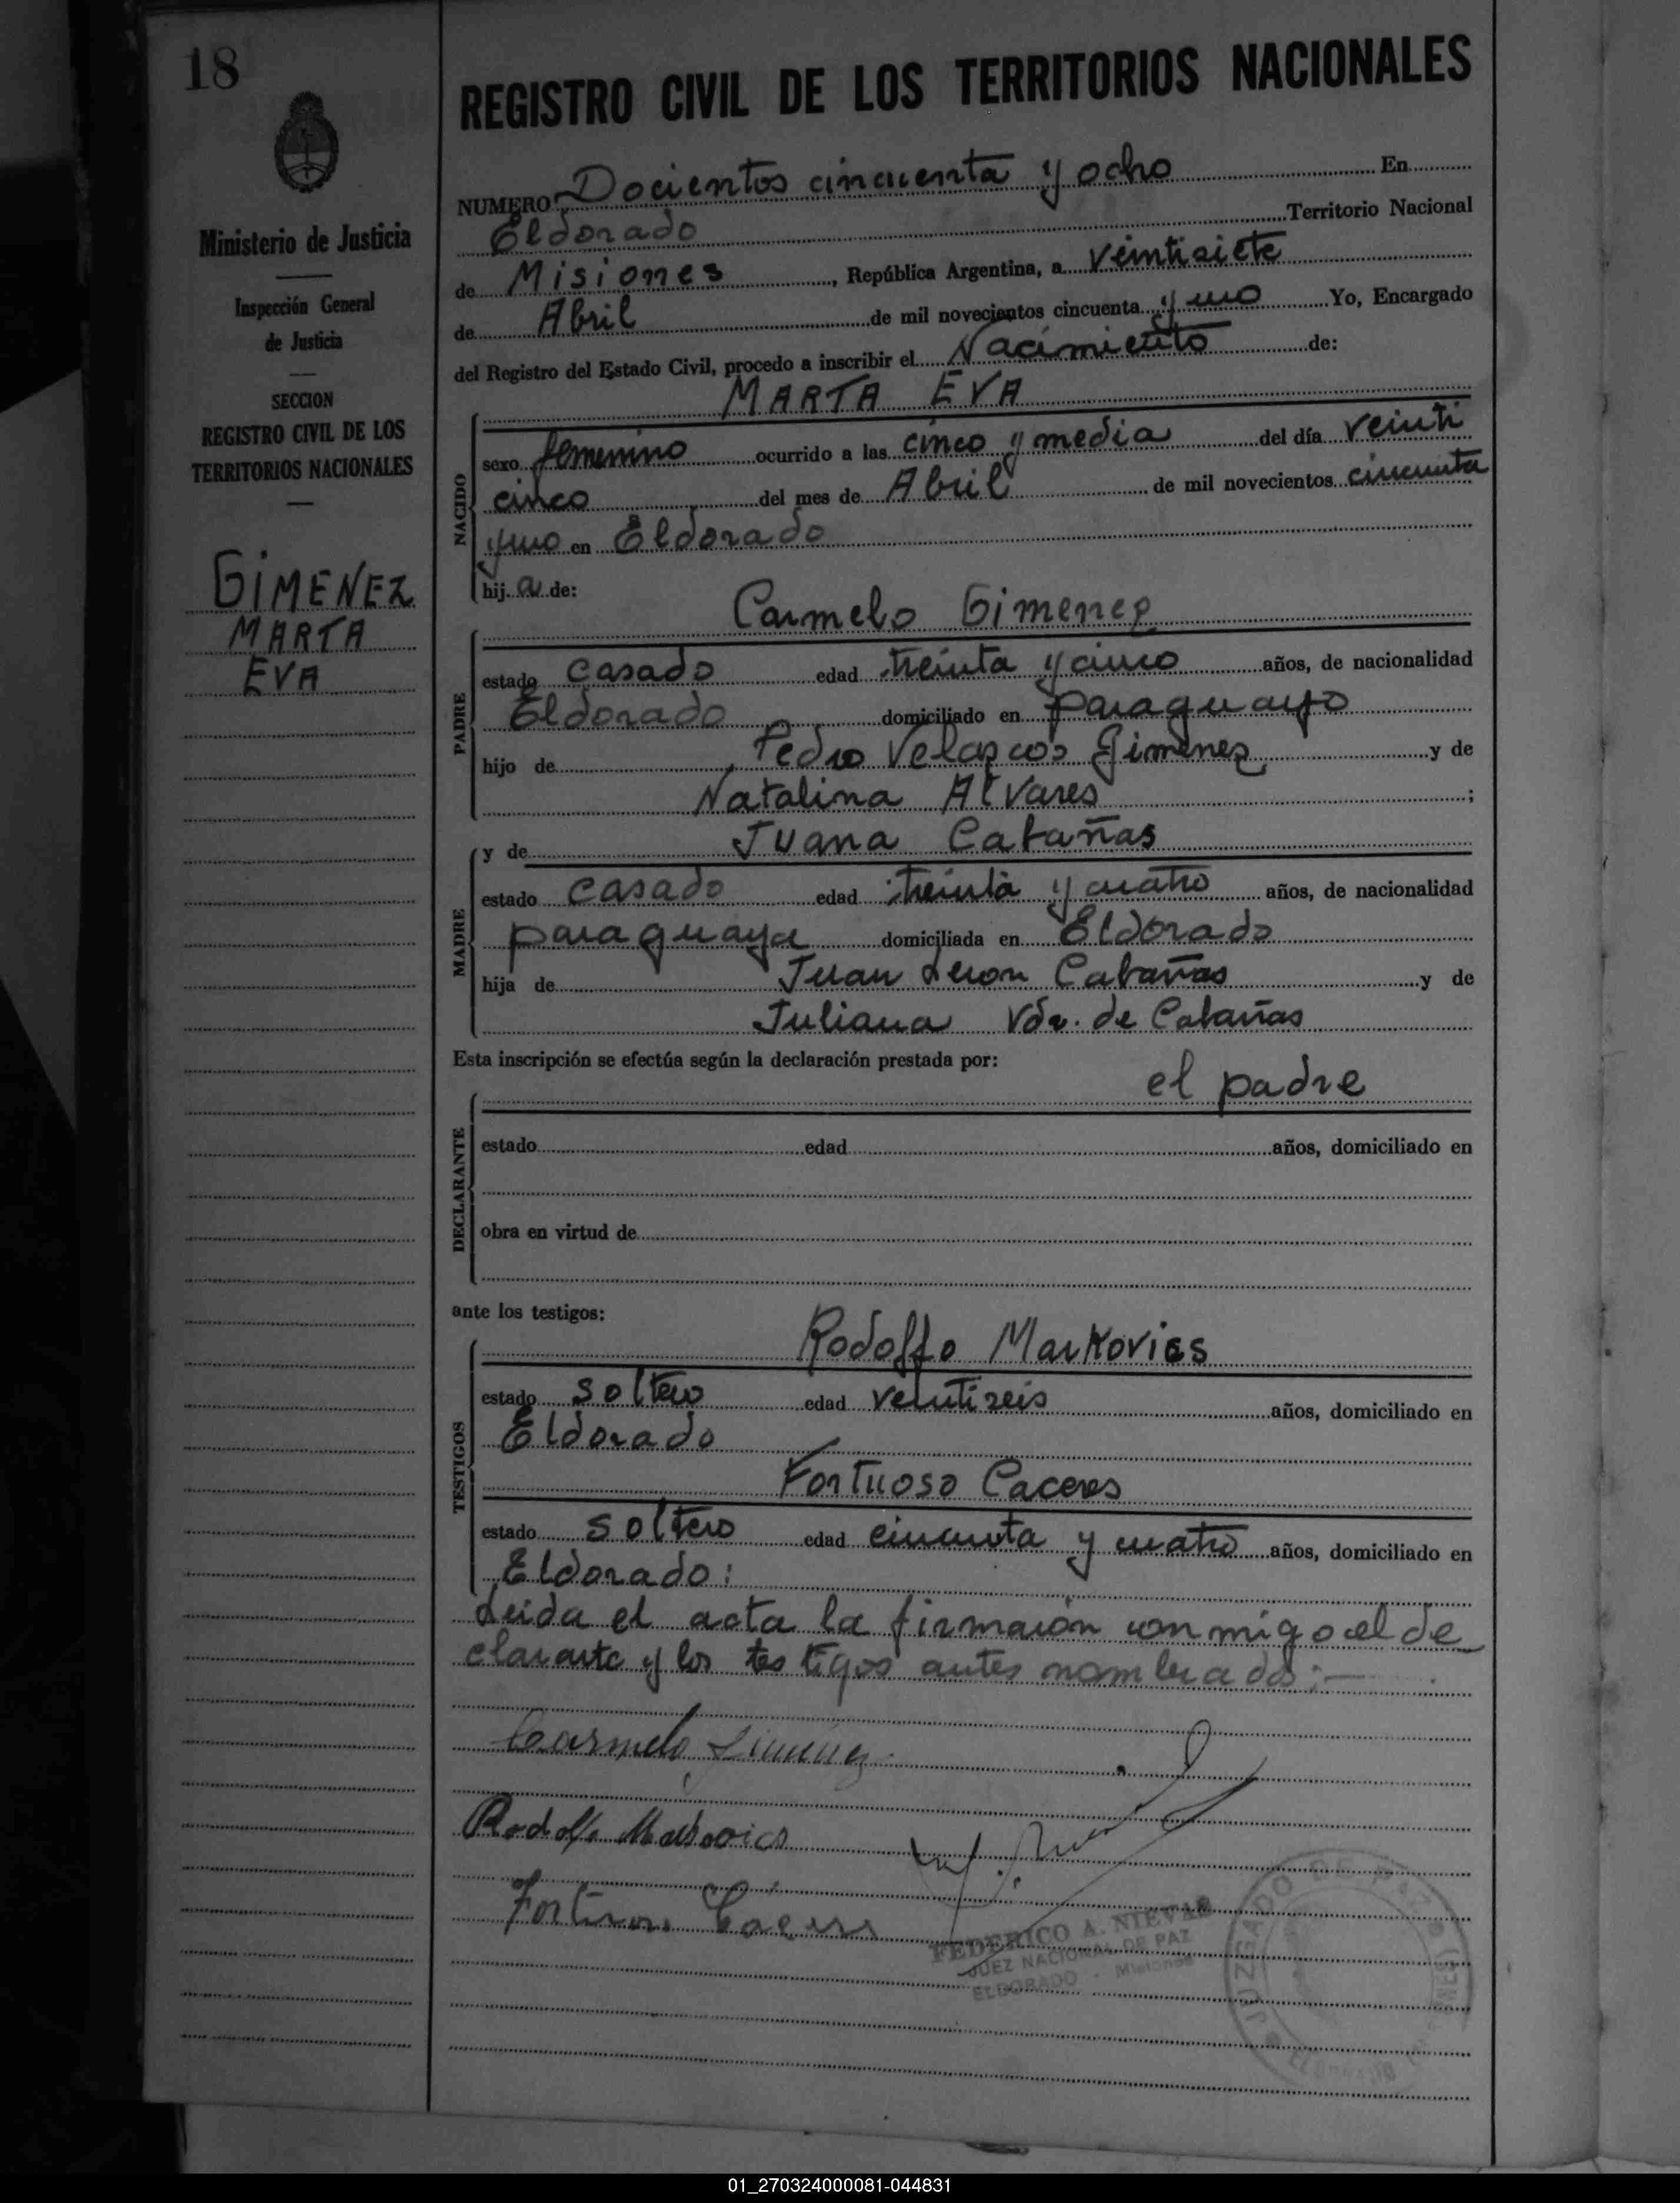 18
Ministerio de Justicia
Inspección General
de Justicia
SECCION
REGISTRO CIVIL DE LOS
TERRITORIOS NACIONALES
GIMENEZ
MARTA
EVA
REGISTRO CIVIL DE LOS TERRITORIOS NACIONALES
NUMERO Docientos cincuenta y ocho En
Eldorado Territorio Nacional
de Misiones, República Argentina, a veintisiete
de Abril de mil novecientos cincuenta y uno Yo, Encargado
del Registro del Estado Civil, procedo a inscribir el Nacimiento de:
MARTA EVA
NACIDO
sexo femenino ocurrido a las cinco y media del día veinti
cinco del mes de Abril de mil novecientos cincuenta
y uno en Eldorado
hij a de:
Carmelo Gimenez
PADRE
estado casado edad treinta y cinco años, de nacionalidad
Eldorado domiciliado en paraguayo
hijo de Pedro Velascos Gimenez y de
Natalina Alvares ;
y de Juana Cabañas
MADRE
estado casado edad treinta y cuatro años, de nacionalidad
paraguaya domiciliada en Eldorado
hija de Juan Leon Cabañas y de
Juliana Vda. de Cabañas
Esta inscripción se efectúa según la declaración prestada por:
el padre
DECLARANTE
estado edad años, domiciliado en
obra en virtud de
ante los testigos:
Rodolfo Markovics
TESTIGOS
estado soltero edad veintiseis años, domiciliado en
Eldorado
Fortuoso Caceres
estado soltero edad cincuenta y cuatro años, domiciliado en
Eldorado:
Leida el acta la firmaron conmigo el de
clarante y los testigos antes nombrados:—
Carmelo Gimenez
Rodolfo Markovics
FEDERICO A. NIEVAS
JUEZ NACIONAL DE PAZ
ELDORADO - Misiones
JUZGADO DE PAZ
01_270324000081-044831